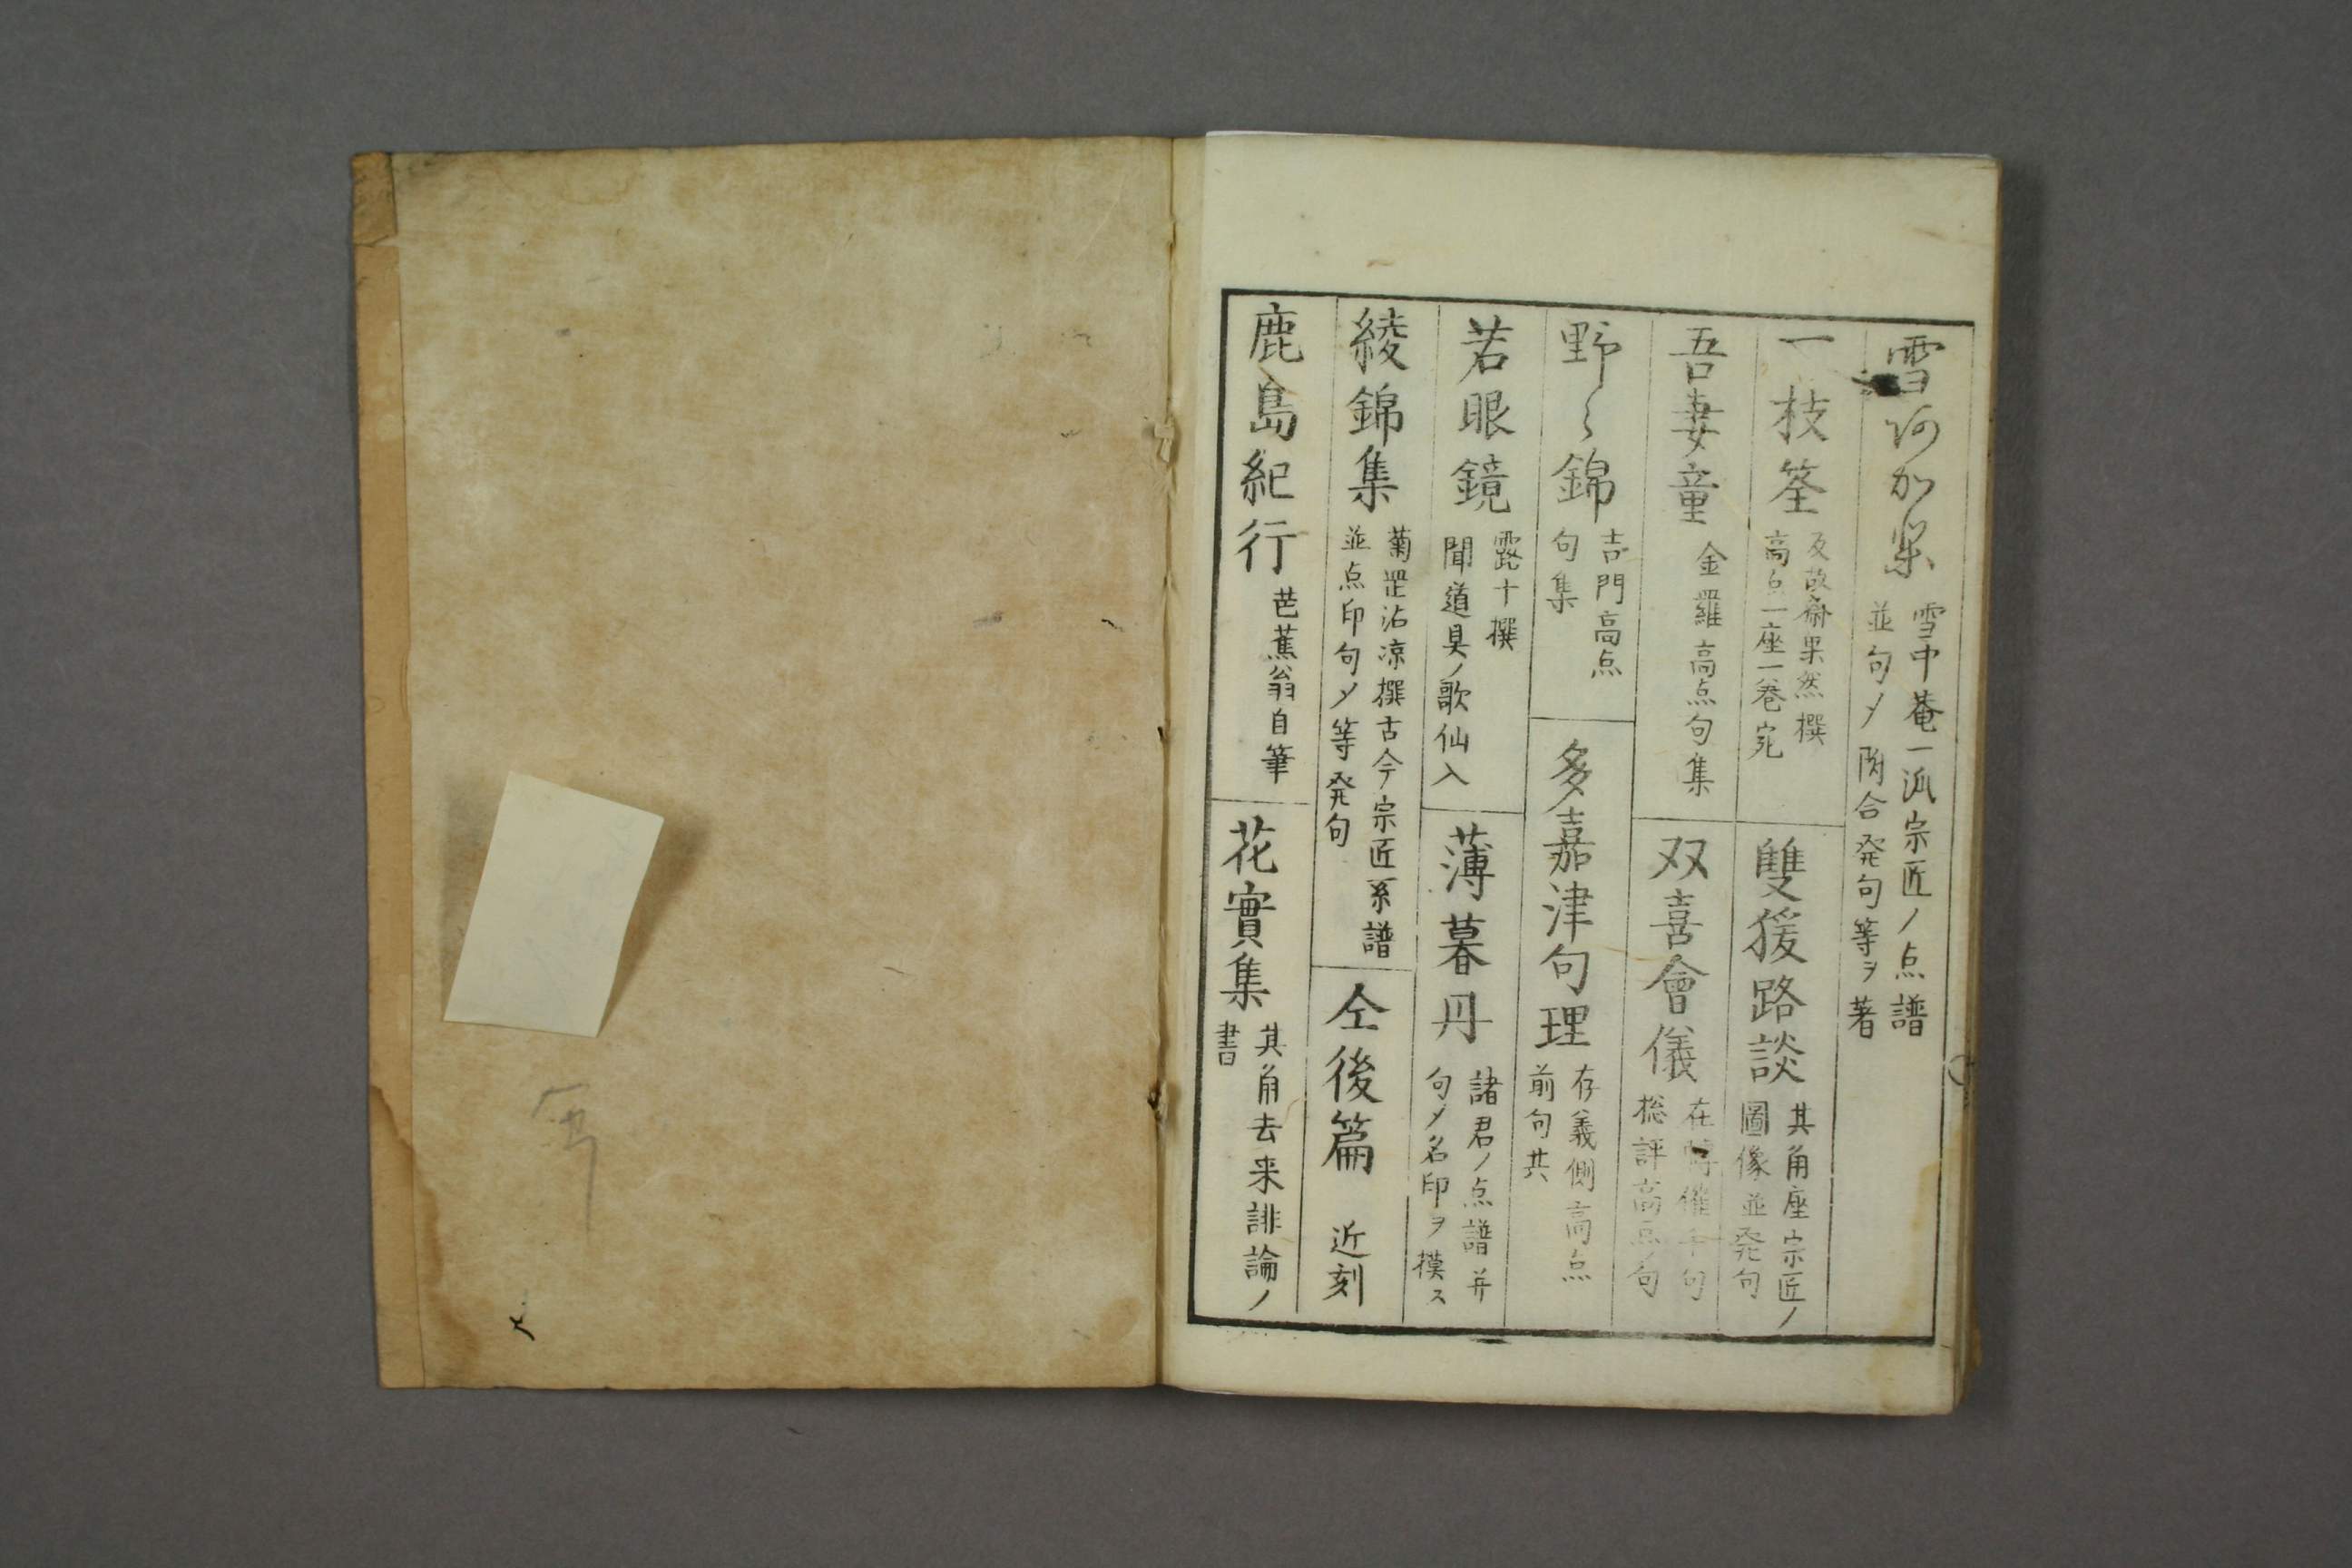 雪河加柴
雪中菴一派宗匠ノ点譜
並句〆両合発句等ヲ著
一枝筌
反故齋果然撰
高点一座一巻宛
雙猨路談
其角座宗匠ノ
圖像並発句
吾妻童
金羅高点句集
双喜會儀
在轉催千句
総評高点ノ句
野〻錦
吉門高点
句集
多嘉津句理
存義側高点
前句共
若眼鏡
露十撰
聞道具ノ歌仙入
薄暮丹
諸君ノ点譜并
句〆名印ヲ摸ス
綾錦集
菊罡沾凉撰古今宗匠系譜
並点印句〆等発句
仝後篇
近刻
鹿島紀行
芭蕉翁自筆
花實集
其角去来誹論ノ
書